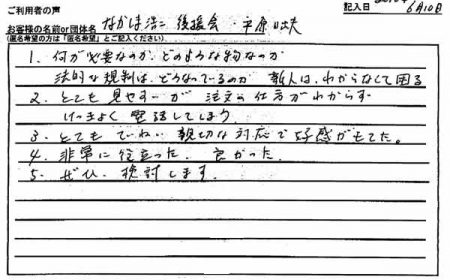 ご利用者の声
記入日
6月10日
お客様の名前or団体名 なかは浩二 後援会・平原
(匿名希望の方は「匿名希望」とご記入ください)
1. 何が必要なのか、どのような物なのか
法的な規制は、どうなっているのか 新人は、わからなくて困る
2. とても見やすいが 注文の仕方がわからず
けっきょく 電話してしまう
3. とてもていねい 親切な対応で好感がもてた。
4. 非常に役立った。良かった
5. ぜひ、検討します。